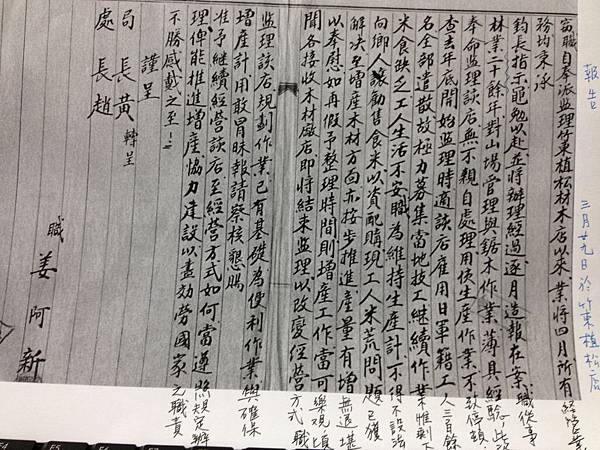 報告 三月廿九日於竹東植松店
竊職自奉派監理竹東植松材木店以來業將四月所有經營業
務均秉承
鈞長指示黽勉以赴並將辦理經過逐月造報在案職從事
林業二十餘年對山場管理與鋸木作業薄具經驗此次
奉命監理該店無不親自處理用使生產作業不致停頓
查去年底開始監理時適該店雇用日軍籍工人三百餘
名全部遣散故極力募集當地技工繼續作業惟剩下
米食缺乏工人生活不安職為維持生產計不得不設法
向鄉人讓勸售食米以資配購現工人米荒問題已獲
解決至增產木材方面亦按步推進產量有增無退堪
以奉慰如再假予整理時間則增產工作當可樂觀頃
聞各接收木材廠店即將結束監理以改變經營方式職
監理該店規劃作業已有基礎為便利作業與確保
增產計用敢冒昧報請察核懇賜
准予繼續經營該店至經營方式如何當遵照規定辦
理俾能推進增產協力建設以盡効勞國家之職責
不勝感戴之至
謹呈
局長黃 轉呈
處長趙
職 姜阿新
F4 F5